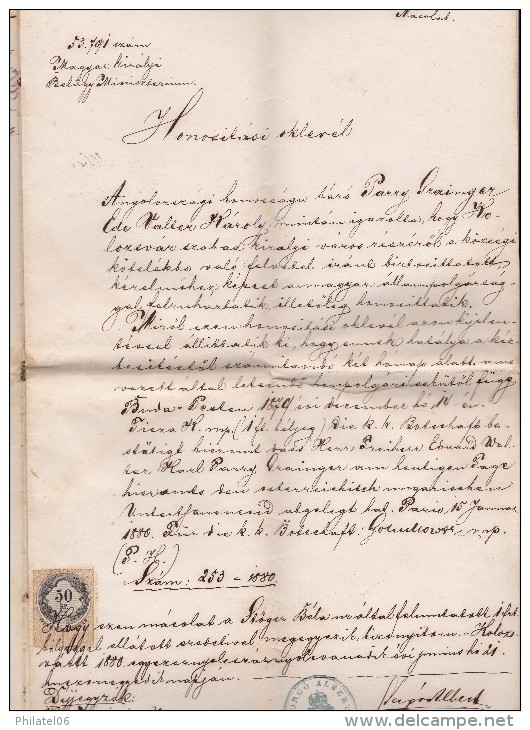 Másolat.
53.791 szám
Magyar Királyi
Belügy Ministerium.
Honositási oklevél
Angolországi honosságu báró Parry Grainger
Ede Valter Károly, miután igazolta, hogy Ko-
lozsvár szabad királyi város részéről a községi
kötelékbe való felvétel iránt biztosittatott,
kérelméhez képest a magyar állampolgárság-
gal felruháztatik, illetőleg honosittatik.
Miről ezen honositási oklevél azon kijelen-
téssel állittatik ki, hogy ennek hatálya a kéz-
besitéstől számitandó két hónap alatt a ne-
vezett által leteendő honpolgári eskütől függ.
Buda-Pesten 1879 évi december hó 14 én.
Tisza K. mp. (1 ft. bélyeg) Die k. k. Botschaft be-
stätigt hiermit dass Herr Freiherr Eduard Wal-
ter Karl Parry Grainger am heutigen Tage
hieramts den österreichisch ungarischen
Unterthaneneid abgelegt hat. Paris 15 Januar
1880. Für die k. k. Botschaft: Goluchowski mp.
(P. H.)
Szám: 253 – 1880.
50
Hogy ezen másolat a Stöger Béla ur által felmutatott 1 frt.
bélyeggel ellátott eredetivel megegyezik, bizonyitom. – Kolozs-
vártt 1880 egyezernyolcszáznyolcvanadik évi junius hó 21.
Dijjegyzék:
Albert
Philatel06
www.delcampe.net